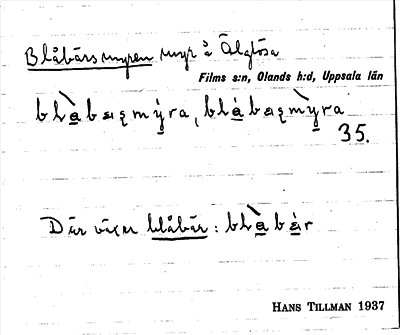 Blåbärsmyren myr å Älgtösa
Films s:n, Olands h:d, Uppsala län
blàbæʂmýra, blábæʂmỳra
35.
Där växer blåbär: blàbär
HANS TILLMAN 1937